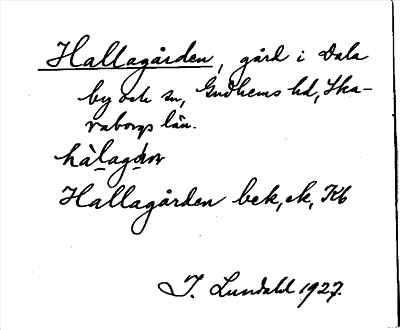 Hallagården, gård i Dala
by och sn, Gudhems hd, Ska-
raborgs län.
Hallagården bek, ek, Kb
I. Lundahl 1927.